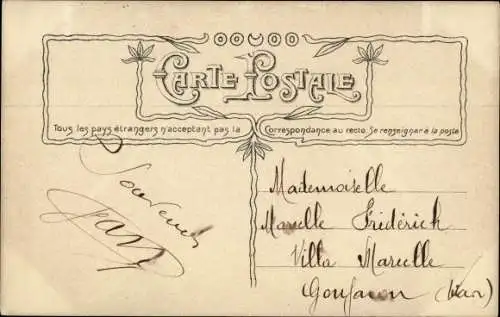 CARTE POSTALE
Tous les pays étrangers n'acceptant pas la Correspondance au recto, Se renseigner à la poste
Souvenir
Mademoiselle
Marcelle Fridérich
Villa Marcelle
Gonfaron (Var)